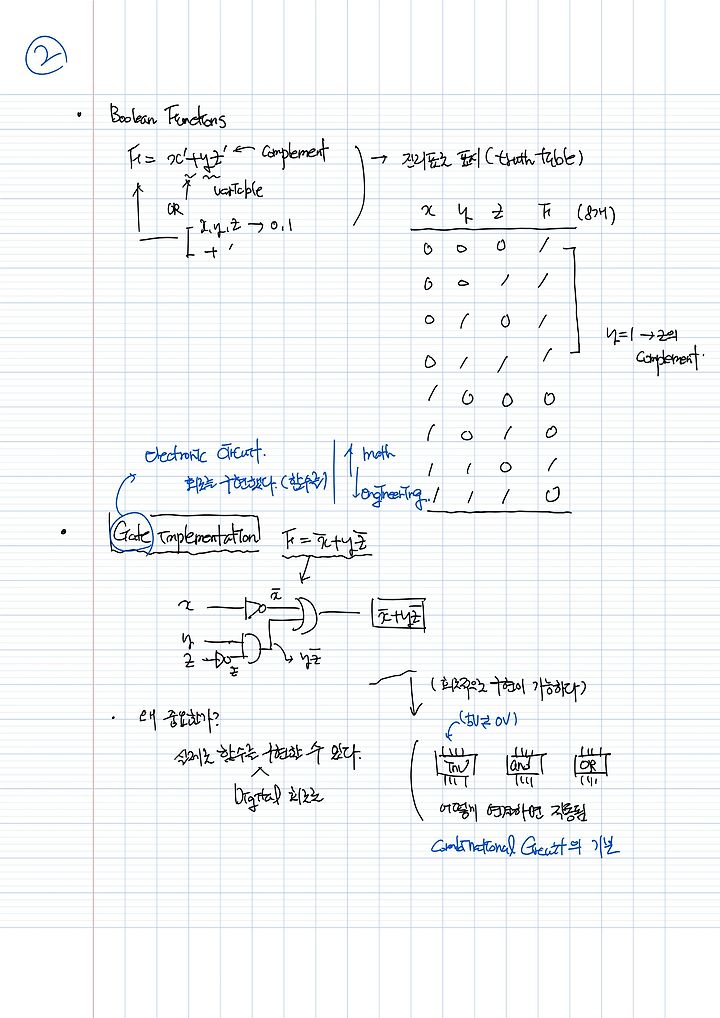 2
• Boolean Functions
F = x' + yz' ← complement
variable
OR
x, y, z → 0, 1
+ '
→ 진리표로 표시 (truth table)
x y z F (8개)
0 0 0 1
0 0 1 1
0 1 0 1
0 1 1 1
1 0 0 0
1 0 1 0
1 1 0 1
1 1 1 0
y=1 → z의
complement.
electronic circuit.
회로를 구현했다. (함수를)
↑ math
↓ engineering.
• Gate Implementation
F = x̅ + yz̅
x x̅
x̅+yz̅
y
z z̅ → yz̅
(회로적으로 구현이 가능하다)
• 왜 중요한가?
실제로 함수를 구현할 수 있다.
Digital 회로로
(5V or 0V)
Inv and OR
어떻게 연결하면 작동됨
Combinational Circuit의 기본